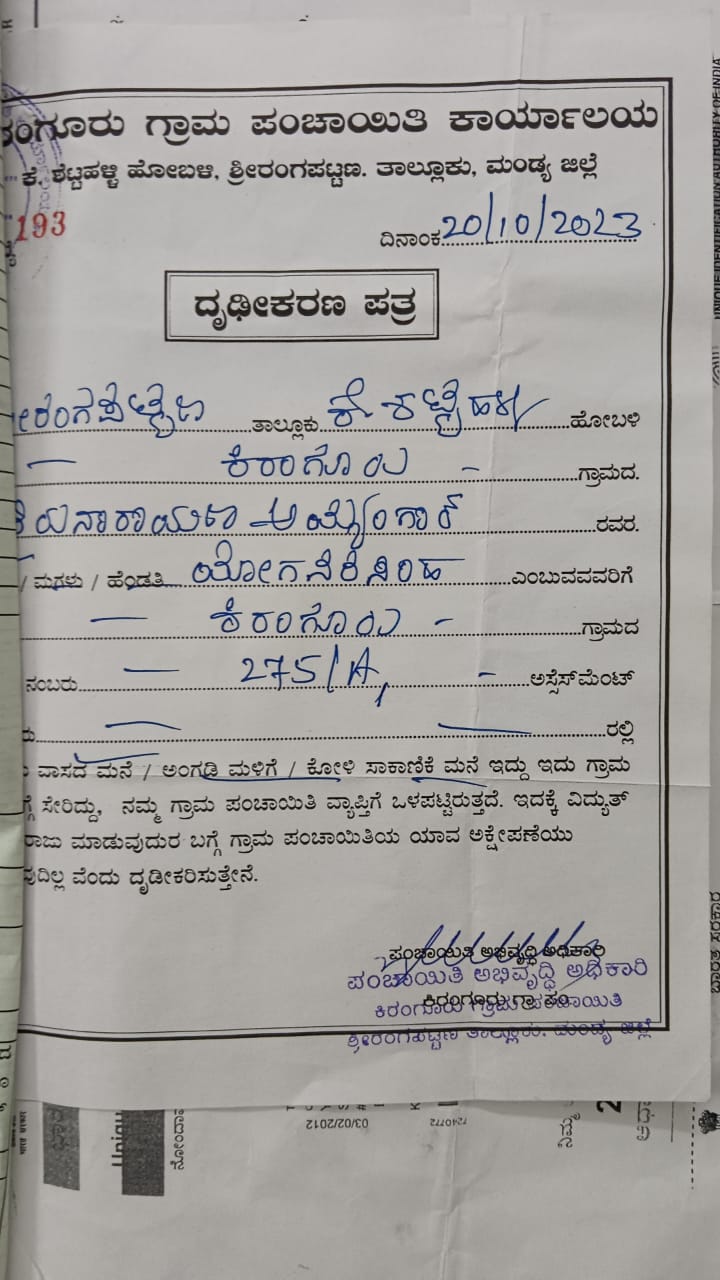 ರಂಗೂರು ಗ್ರಾಮ ಪಂಚಾಯಿತಿ ಕಾರ್ಯಾಲಯ
ಕೆ. ಶೆಟ್ಟಹಳ್ಳಿ ಹೋಬಳಿ, ಶ್ರೀರಂಗಪಟ್ಟಣ. ತಾಲ್ಲೂಕು, ಮಂಡ್ಯ ಜಿಲ್ಲೆ
193
ದಿನಾಂಕ 20/10/2023
ದೃಢೀಕರಣ ಪತ್ರ
ತಾಲ್ಲೂಕು ಕೆ ಶೆಟ್ಟಹಳ್ಳಿ ಹೋಬಳಿ
— ಕಿರಂಗೂರು - ಗ್ರಾಮದ.
ನಾರಾಯಣ ಅಯ್ಯಂಗಾರ್ ರವರ.
/ ಮಗಳು / ಹೆಂಡತಿ ಯೋಗನರಸಿಂಹ ಎಂಬುವವವರಿಗೆ
— ಕಿರಂಗೂರು - ಗ್ರಾಮದ
ನಂಬರು — 275/A, - ಅಸ್ಸೆಸ್‌ಮೆಂಟ್
ರಲ್ಲಿ
ವಾಸದ ಮನೆ / ಅಂಗಡಿ ಮಳಿಗೆ / ಕೋಳಿ ಸಾಕಾಣಿಕೆ ಮನೆ ಇದ್ದು ಇದು ಗ್ರಾಮ
ಗೆ ಸೇರಿದ್ದು, ನಮ್ಮ ಗ್ರಾಮ ಪಂಚಾಯಿತಿ ವ್ಯಾಪ್ತಿಗೆ ಒಳಪಟ್ಟಿರುತ್ತದೆ. ಇದಕ್ಕೆ ವಿದ್ಯುತ್
ರಾಜು ಮಾಡುವುದುರ ಬಗ್ಗೆ ಗ್ರಾಮ ಪಂಚಾಯಿತಿಯ ಯಾವ ಅಕ್ಷೇಪಣೆಯು
ವುದಿಲ್ಲ ವೆಂದು ದೃಢೀಕರಿಸುತ್ತೇನೆ.
ಪಂಚಾಯಿತಿ ಅಭಿವೃದ್ಧಿ ಅಧಿಕಾರಿ
ಪಂಚಾಯಿತಿ ಅಭಿವೃದ್ಧಿ ಅಧಿಕಾರಿ
ಕಿರಂಗೂರು ಗ್ರಾ ಪಂ
ಕಿರಂಗೂರು ಗ್ರಾಮ ಪಂಚಾಯಿತಿ
ಶ್ರೀರಂಗಪಟ್ಟಣ ತಾಲ್ಲೂಕು, ಮಂಡ್ಯ ಜಿಲ್ಲೆ
03/02/2012
UNIQUE IDENTIFICATION AUTHORITY OF INDIA
ಭಾರತ ಸರಕಾರ